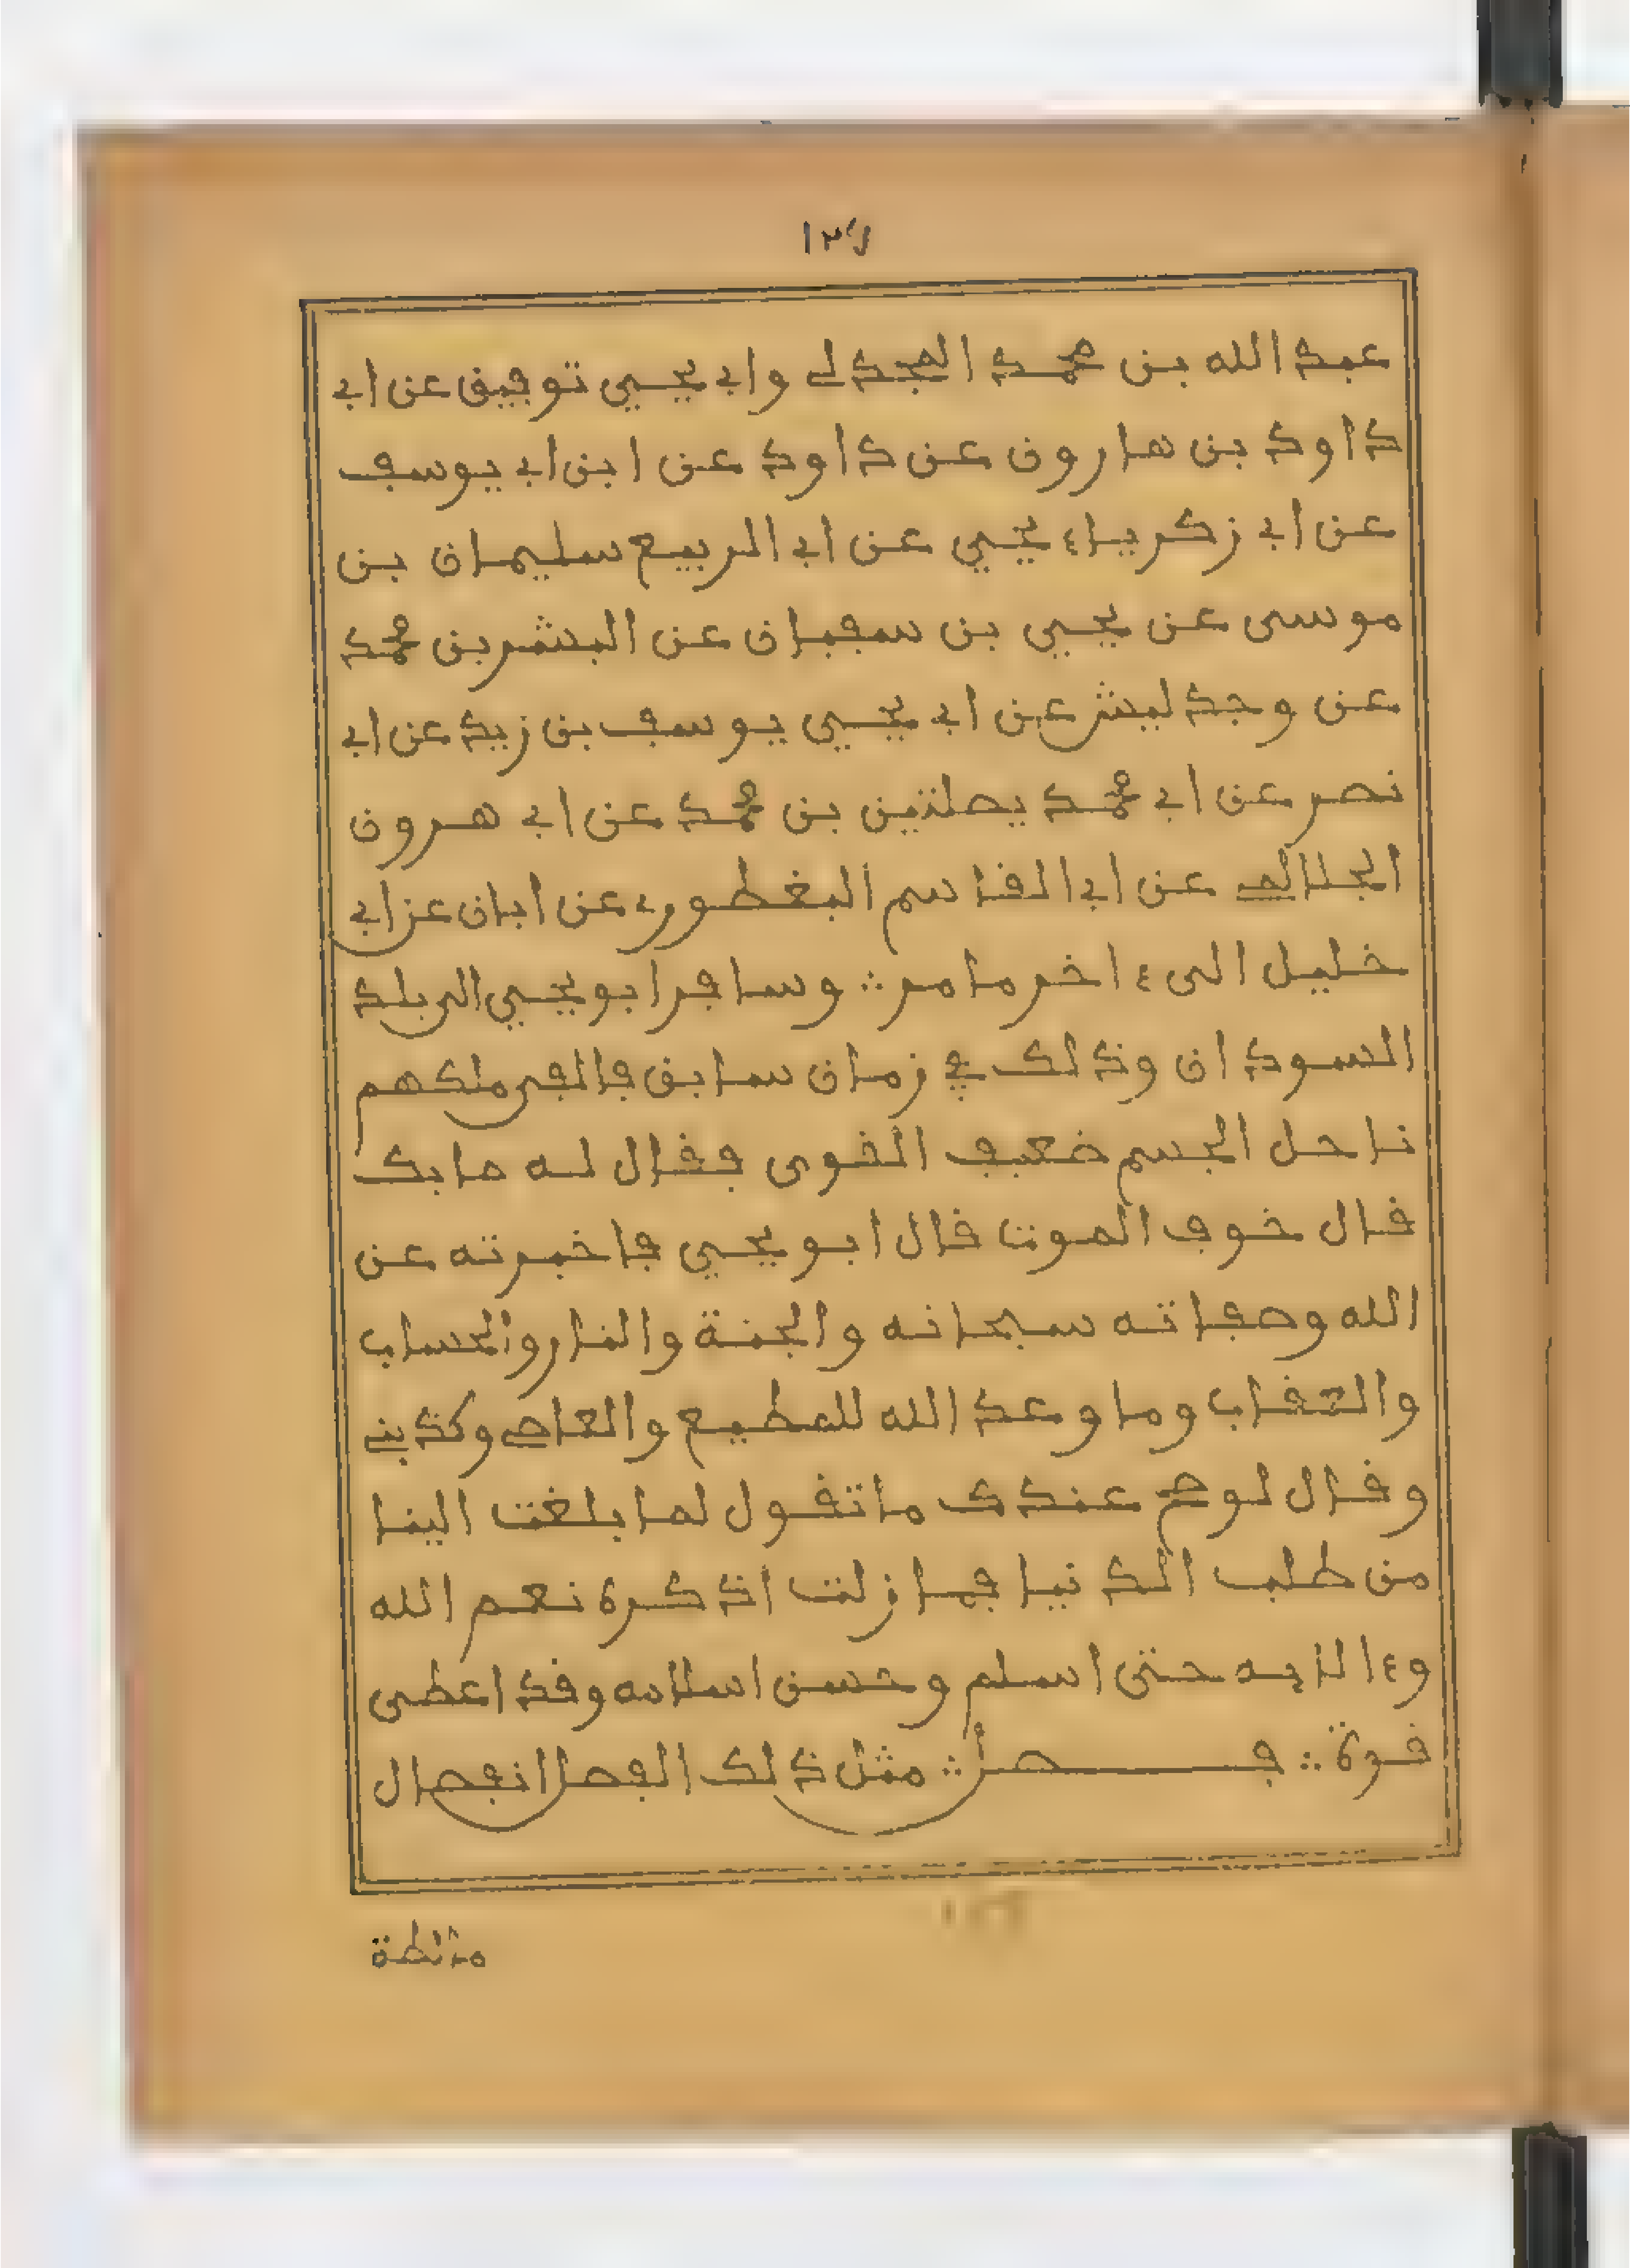 عبد الله بن محمد المجدلى وابي يحيى توفيق عن ابي
داود بن هارون عن داود عن ابن ابي يوسف
عن ابي زكرياء يحيى عن ابي الربيع سليمان بن
موسى عن يحيى بن سفيان عن البشر بن محمد
عن وجدليش عن ابي يحيى يوسف بن زيد عن ابي
نصر عن ابي محمد يصلتين بن محمد عن ابي هرون
الجلالمى عن ابي القاسم البغطورى عن ابان عن ابي
خليل الىءاخر ما مر ∴ وسافر ابو يحيى الى بلد
السودان وذلك في زمان سابق فالفى ملكهم
ناحل الجسم ضعيف القوى فقال له ما بك
قال خوف الموت قال ابو يحيى فاخبرته عن
الله وصفاته سبحانه والجنة والنار والحساب
والعقاب وما وعد الله للمطيع والعاصى وكذبنى
وقال لو صح عندك ما تقول لما بلغت الينا
من طلب الدنيا فما زلت اذكره نعم الله
وءالايه حتى اسلم وحسن اسلامه وقد اعطى
قوة ∴ فصل ∴ مثل ذلك الفصل انفصال